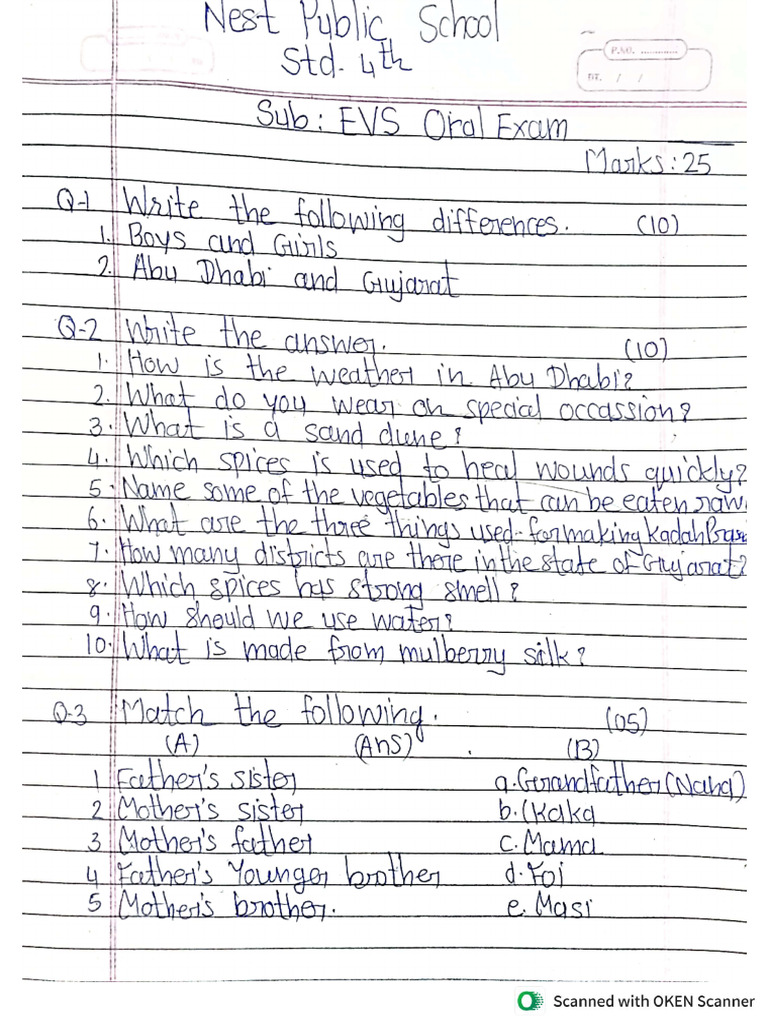 Nest Public School
Std. 4th
P.NO. ............
DT. / /
Sub: EVS Oral Exam
Marks: 25
Q-1 Write the following differences. (10)
1. Boys and Girls
2. Abu Dhabi and Gujarat
Q-2 Write the answer. (10)
1. How is the weather in Abu Dhabi?
2. What do you wear on special occassion?
3. What is a sand dune?
4. Which spices is used to heal wounds quickly?
5. Name some of the vegetables that can be eaten raw.
6. What are the three things used for making Kadah Prasa
7. How many districts are there in the state of Gujarat?
8. Which spices has strong smell?
9. How should we use water?
10. What is made from mulberry silk?
Q-3 Match the following. (05)
(A) (Ans) (B)
1 Father's sister a. Grandfather (Nana)
2 Mother's sister b. (kaka
3 Mother's father c. Mama
4 Father's Younger brother d. Foi
5 Mother's brother. e. Masi
Scanned with OKEN Scanner